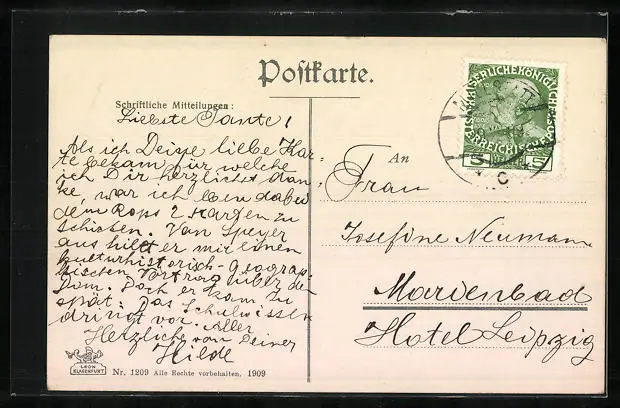 Postkarte.
Schriftliche Mitteilungen:
Liebste Tante!
Als ich Deine liebe Kar-
te bekam für welche
ich Dir herzlichst dan
ke, war ich eben dabei
dem Rops 2 Karten zu
schicken. Von Speyer
aus hielt er mir einen
kulturhistorisch-geograp-
hischen Vortrag über den
Dom. Doch er kam zu
spät: Das Schulwissen
dringt vor. Aller
Herzlichst von Deiner
Hilde
An
Frau
Josefine Neumann
Marienbad
Hotel Leipzig
KAISERLICHE KÖNIGLICHE
ÖSTERREICHISCHE POST
5 5
LEON
KLAGENFURT
Nr. 1209 Alle Rechte vorbehalten, 1909